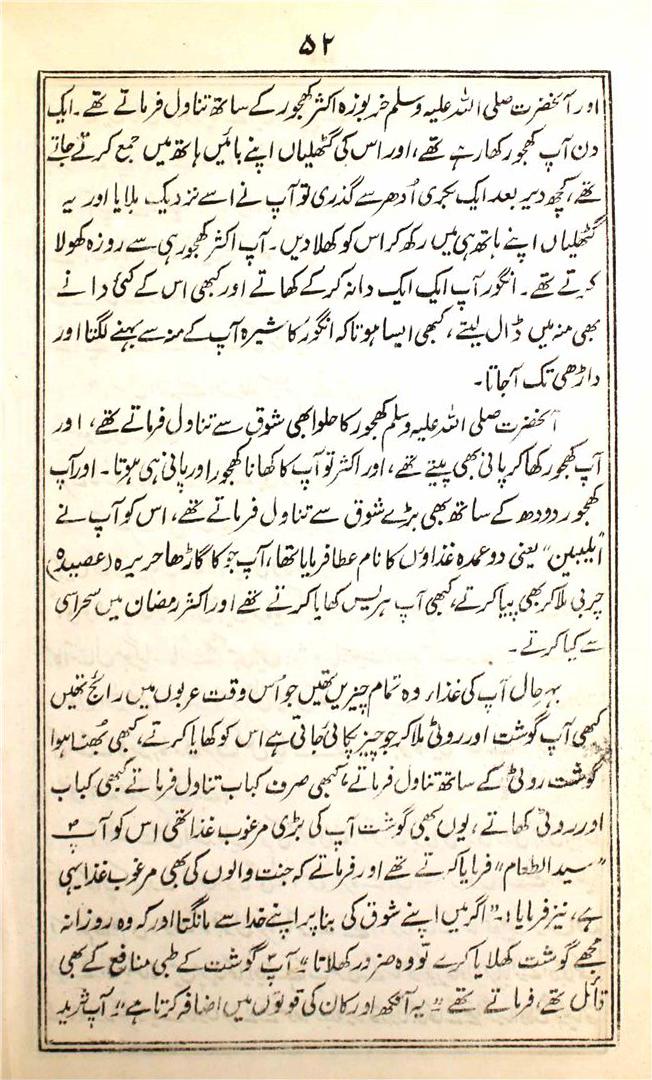 ۵۲
اور آنحضرت صلی اللہ علیہ وسلم خربوزہ اکثر کھجور کے ساتھ تناول فرماتے تھے۔ ایک
دن آپ کھجور کھا رہے تھے، اور اس کی گٹھلیاں اپنے بائیں ہاتھ میں جمع کرتے جاتے
تھے، کچھ دیر بعد ایک بکری اُدھر سے گذری تو آپ نے اسے نزدیک بلایا اور یہ
گٹھلیاں اپنے ہاتھ ہی میں رکھ کر اس کو کھلا دیں۔ آپ اکثر کھجور ہی سے روزہ کھولا
کرتے تھے۔ انگور آپ ایک ایک دانہ کر کے کھاتے اور کبھی اس کے کئی دانے
بھی منہ میں ڈال لیتے، کبھی ایسا ہوتا کہ انگور کا شیرہ آپ کے منہ سے بہنے لگتا اور
داڑھی تک آجاتا۔
آنحضرت صلی اللہ علیہ وسلم کھجور کا حلوا بھی شوق سے تناول فرماتے تھے، اور
آپ کھجور کھا کر پانی بھی پیتے تھے، اور اکثر تو آپ کا کھانا کھجور اور پانی ہی ہوتا۔ اور آپ
کھجور دودھ کے ساتھ بھی بڑے شوق سے تناول فرماتے تھے، اس کو آپ نے
یعنی دو عمدہ غذاؤں کا نام عطا فرمایا تھا، آپ جَو کا گاڑھا حریرہ (عصیدہ)
چربی ملا کر بھی پیا کرتے، کبھی آپ ہریس کھایا کرتے تھے اور اکثر رمضان میں سحر اسی
سے کیا کرتے۔
بہر حال آپ کی غذاء وہ تمام چیزیں تھیں جو اُس وقت عربوں میں رائج تھیں
کبھی آپ گوشت اور روٹی ملا کر جو چیز پکائی جاتی ہے اس کو کھایا کرتے، کبھی بُھنا ہوا
گوشت روٹی کے ساتھ تناول فرماتے، کبھی صرف کباب تناول فرماتے کبھی کباب
اور روٹی کھاتے، یوں بھی گوشت آپ کی بڑی مرغوب غذا تھی اس کو آپؐ
”سید الطعام“ فرمایا کرتے تھے اور فرماتے کہ جنت والوں کی بھی مرغوب غذا یہی
ہے، نیز فرمایا:۔ ”اگر میں اپنے شوق کی بنا پر اپنے خدا سے مانگتا اور کہ وہ روزانہ
مجھے گوشت کھلایا کرے تو وہ ضرور کھلاتا“ آپؐ گوشت کے طبی منافع کے بھی
قائل تھے، فرماتے تھے ”یہ آنکھ اور کان کی قوتوں میں اضافہ کرتا ہے“ آپ ثرید